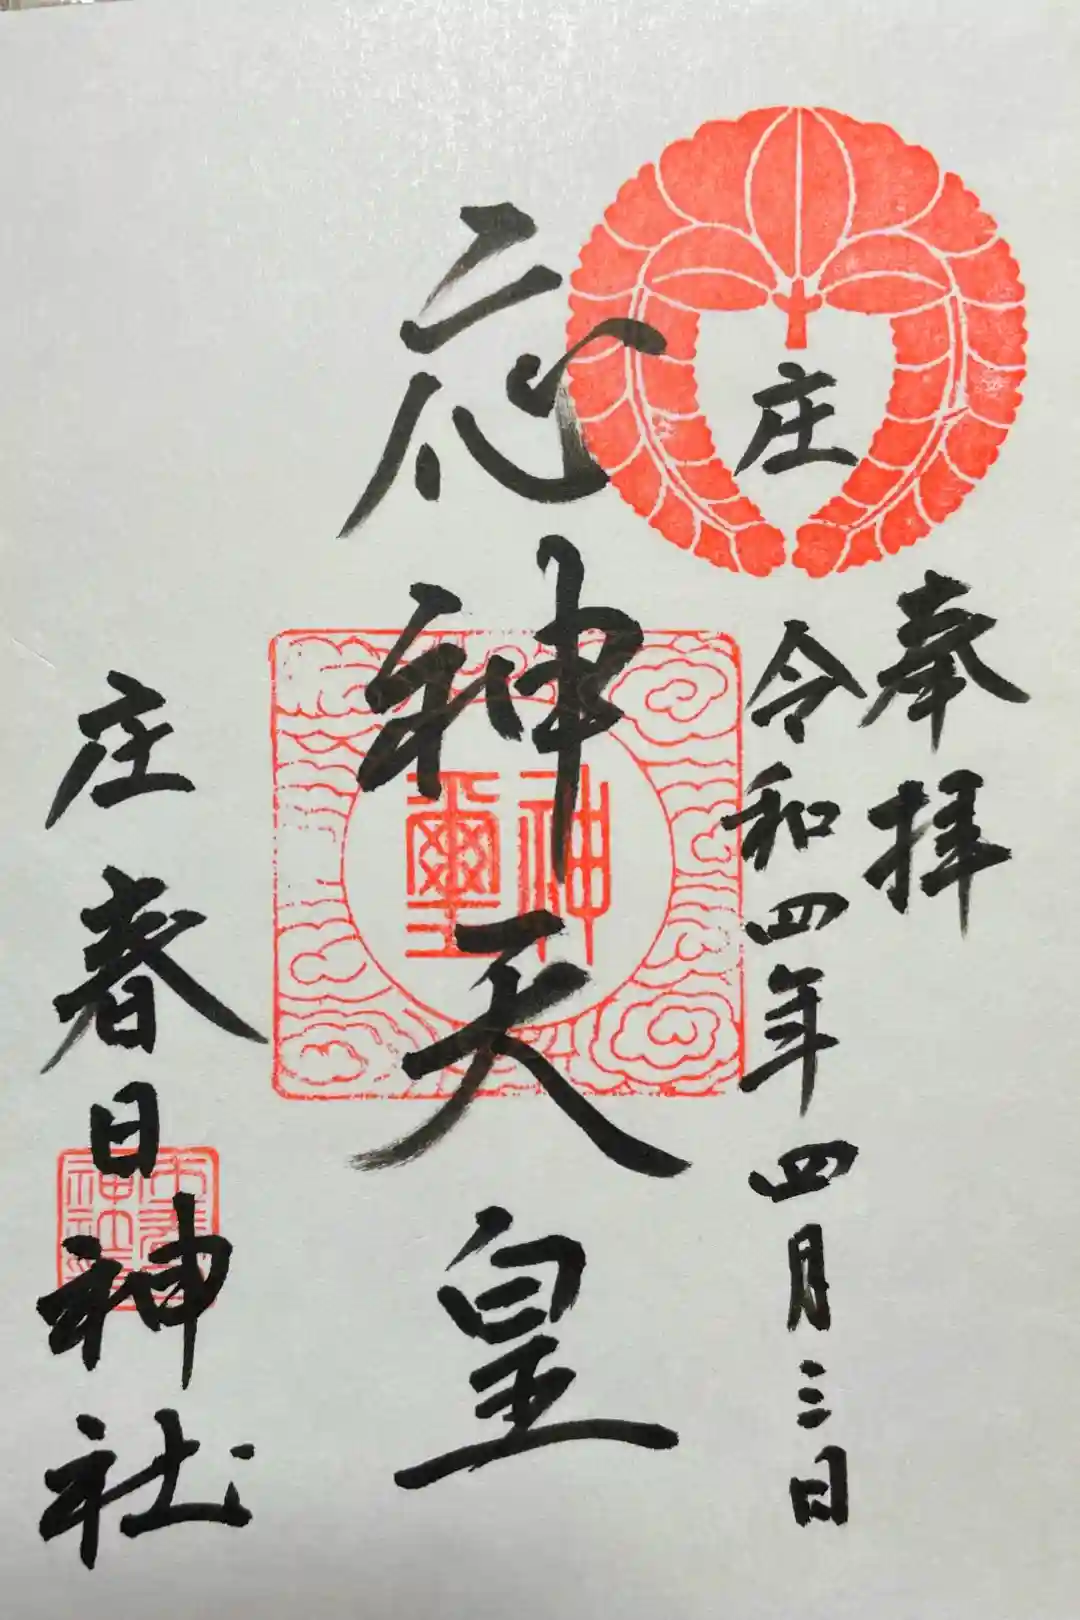 奉拝
庄
令和四年四月三日
応神天皇
神璽
庄春日神社